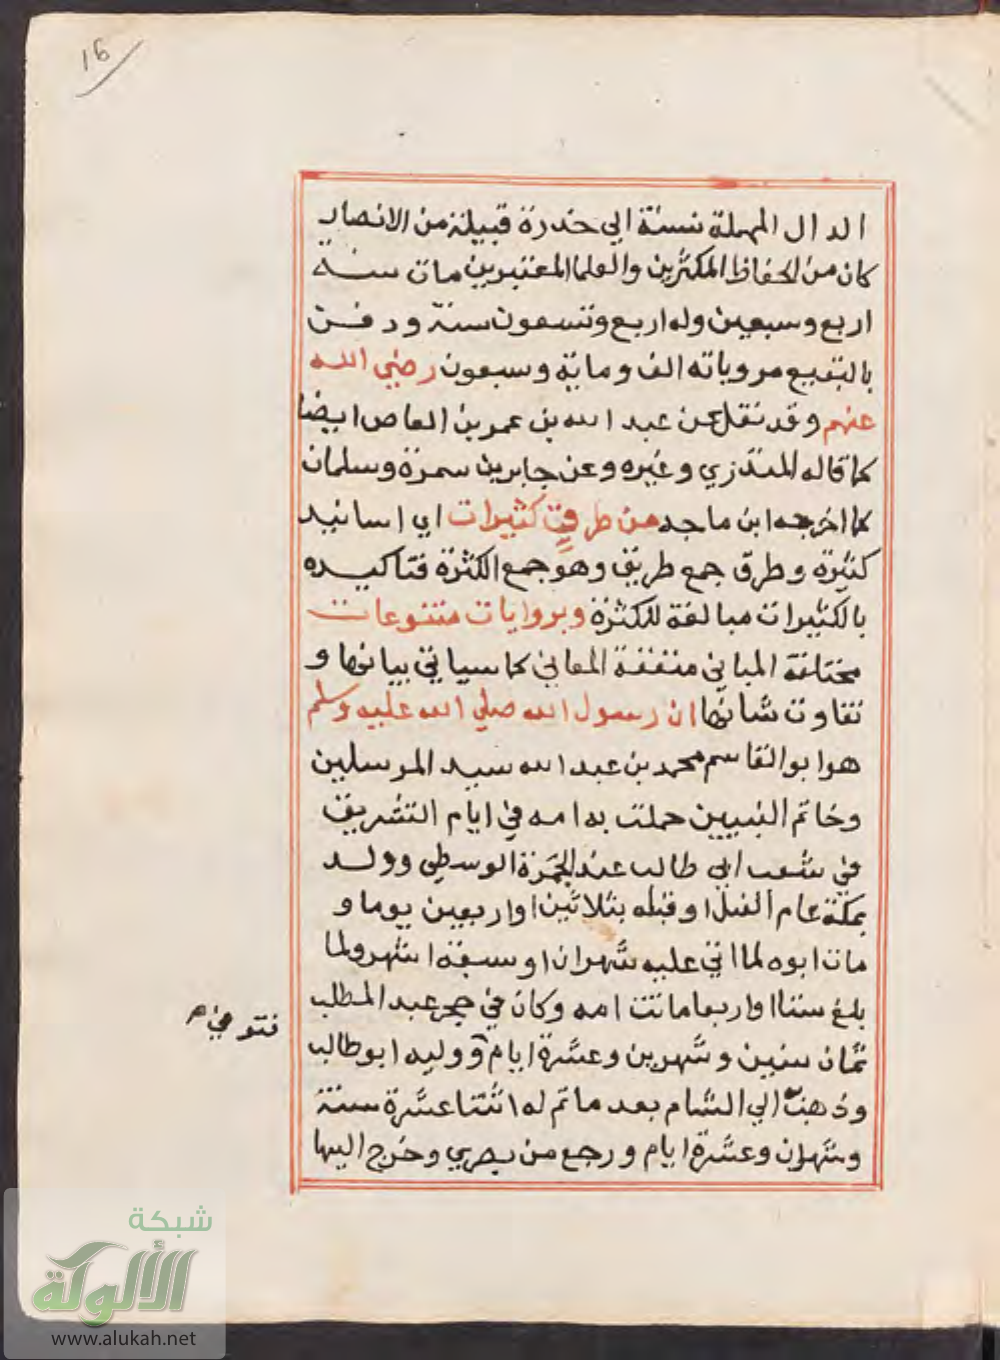 16
الدال المهملة نسبة الي خدرة قبيلة من الانصار
كان من الحفاظ المكثرين والعلما المعتبرين مات سنة
اربع وسبعين وله اربع وتسعون سنة ودفن
بالبقيع مروياته الف وماية وسبعون رضي الله
عنهم وقد نقل عن عبد الله بن عمر بن العاص ايضا
كما قاله المنذري وغيره وعن جابر بن سمرة وسلمان
كما اخرجه ابن ماجه من طرق كثيرات اي اسانيد
كثيرة وطرق جمع طريق وهو جمع الكثرة فتاكيده
بالكثيرات مبالغة للكثرة وبروايات متنوعات
مختلفة المباني متفقة المعاني كما سياتي بيانها و
تفاوت شانها ان رسول الله صلي الله عليه وسلم
هو ابو القاسم محمد بن عبد الله سيد المرسلين
وخاتم النبيين حملت به امه في ايام التشريق
في شعب ابي طالب عند الجمرة الوسطي وولد
بمكة عام الفيل او قبله بثلاثين او اربعين يوما و
مات ابوه لما اتي عليه شهران او سبعة اشهر ولما
بلغ ستا او اربعا ماتت امه وكان في حجر عبد المطلب
ثمان سنين وشهرين وعشرة ايام ووليه ابو طالب
فتوفي م
وذهب الي الشام بعد ما تم له اثنتا عشرة سنة
وشهران وعشرة ايام ورجع من بصري وخرج اليها
شبكة
الألوكة
www.alukah.net